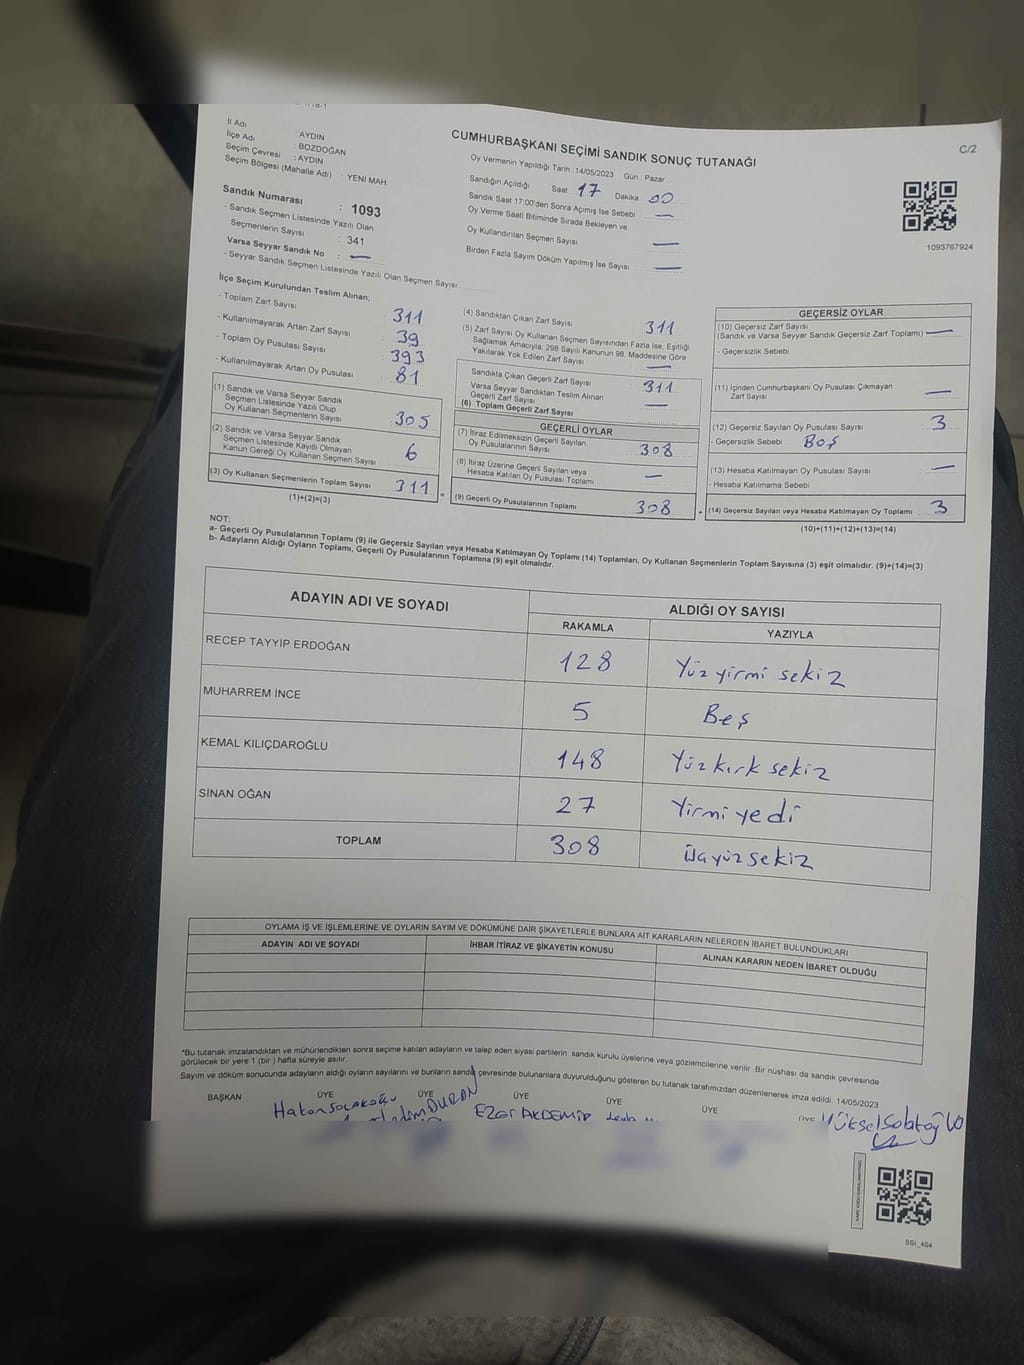 İl Adı : AYDIN
İlçe Adı : BOZDOĞAN
Seçim Çevresi : AYDIN
Seçim Bölgesi (Mahalle Adı) : YENİ MAH.
CUMHURBAŞKANI SEÇİMİ SANDIK SONUÇ TUTANAĞI
C/2
Oy Vermenin Yapıldığı Tarih : 14/05/2023 Gün : Pazar
Sandığın Açıldığı Saat 17 Dakika 00
Sandık Saat 17:00'den Sonra Açımış İse Sebebi —
Oy Verme Saati Bitiminde Sırada Bekleyen ve
Oy Kullandırılan Seçmen Sayısı —
Birden Fazla Sayım Döküm Yapılmış İse Sayısı —
1093767924
Sandık Numarası : 1093
- Sandık Seçmen Listesinde Yazılı Olan
Seçmenlerin Sayısı : 341
Varsa Seyyar Sandık No : —
- Seyyar Sandık Seçmen Listesinde Yazılı Olan Seçmen Sayısı:
İlçe Seçim Kurulundan Teslim Alınan;
- Toplam Zarf Sayısı 311
- Kullanılmayarak Artan Zarf Sayısı 39
- Toplam Oy Pusulası Sayısı 393
- Kullanılmayarak Artan Oy Pusulası 81
(1) Sandık ve Varsa Seyyar Sandık
Seçmen Listesinde Yazılı Olup
Oy Kullanan Seçmenlerin Sayısı 305
(2) Sandık ve Varsa Seyyar Sandık
Seçmen Listesinde Kayıtlı Olmayan
Kanun Gereği Oy Kullanan Seçmen Sayısı 6
(3) Oy Kullanan Seçmenlerin Toplam Sayısı 311
(1)+(2)=(3)
=
(4) Sandıktan Çıkan Zarf Sayısı 311
(5) Zarf Sayısı Oy Kullanan Seçmen Sayısından Fazla İse, Eşitliği
Sağlamak Amacıyla; 298 Sayılı Kanunun 98. Maddesine Göre
Yakılarak Yok Edilen Zarf Sayısı —
Sandıkta Çıkan Geçerli Zarf Sayısı 311
Varsa Seyyar Sandıktan Teslim Alınan
Geçerli Zarf Sayısı —
(6) Toplam Geçerli Zarf Sayısı
GEÇERLİ OYLAR
(7) İtiraz Edilmeksizin Geçerli Sayılan
Oy Pusulalarının Sayısı 308
(8) İtiraz Üzerine Geçerli Sayılan veya
Hesaba Katılan Oy Pusulası Toplamı —
(9) Geçerli Oy Pusulalarının Toplamı 308
+
GEÇERSİZ OYLAR
(10) Geçersiz Zarf Sayısı
(Sandık ve Varsa Seyyar Sandık Geçersiz Zarf Toplamı) —
- Geçersizlik Sebebi
(11) İçinden Cumhurbaşkanı Oy Pusulası Çıkmayan
Zarf Sayısı —
(12) Geçersiz Sayılan Oy Pusulası Sayısı 3
- Geçersizlik Sebebi Boş
(13) Hesaba Katılmayan Oy Pusulası Sayısı —
- Hesaba Katılmama Sebebi
(14) Geçersiz Sayılan veya Hesaba Katılmayan Oy Toplamı 3
(10)+(11)+(12)+(13)=(14)
NOT:
a- Geçerli Oy Pusulalarının Toplamı (9) ile Geçersiz Sayılan veya Hesaba Katılmayan Oy Toplamı (14) Toplamları, Oy Kullanan Seçmenlerin Toplam Sayısına (3) eşit olmalıdır. (9)+(14)=(3)
b- Adayların Aldığı Oyların Toplamı, Geçerli Oy Pusulalarının Toplamına (9) eşit olmalıdır.
ADAYIN ADI VE SOYADI
ALDIĞI OY SAYISI
RAKAMLA YAZIYLA
RECEP TAYYİP ERDOĞAN 128 Yüz yirmi sekiz
MUHARREM İNCE 5 Beş
KEMAL KILIÇDAROĞLU 148 Yüz kırk sekiz
SİNAN OĞAN 27 Yirmi yedi
TOPLAM 308 Üçyüz sekiz
OYLAMA İŞ VE İŞLEMLERİNE VE OYLARIN SAYIM VE DÖKÜMÜNE DAİR ŞİKAYETLERLE BUNLARA AİT KARARLARIN NELERDEN İBARET BULUNDUKLARI
ADAYIN ADI VE SOYADI İHBAR İTİRAZ VE ŞİKAYETİN KONUSU ALINAN KARARIN NEDEN İBARET OLDUĞU
*Bu tutanak imzalandıktan ve mühürlendikten sonra seçime katılan adayların ve talep eden siyasi partilerin sandık kurulu üyelerine veya gözlemcilerine verilir. Bir nüshası da sandık çevresinde
görülecek bir yere 1 (bir ) hafta süreyle asılır.
Sayım ve döküm sonucunda adayların aldığı oyların sayılarını ve bunların sandık çevresinde bulunanlara duyurulduğunu gösteren bu tutanak tarafımızdan düzenlenerek imza edildi. 14/05/2023
BAŞKAN ÜYE ÜYE ÜYE ÜYE ÜYE ÜYE
Hakan SOLAKOĞLU
DURAN
EZGİ AKDEMİR
Yüksel Solakoğlu
SSİ_404